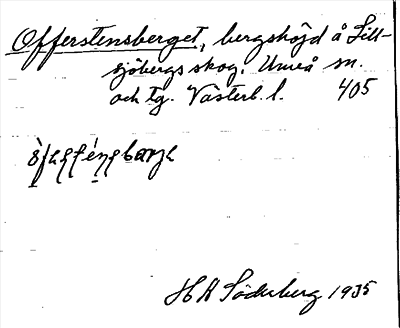 Offerstensberget, bergshöjd å Sill-
sjöbergs skog. Umeå sn.
och tg. Västerb. l. 405
H A Söderberg 1935